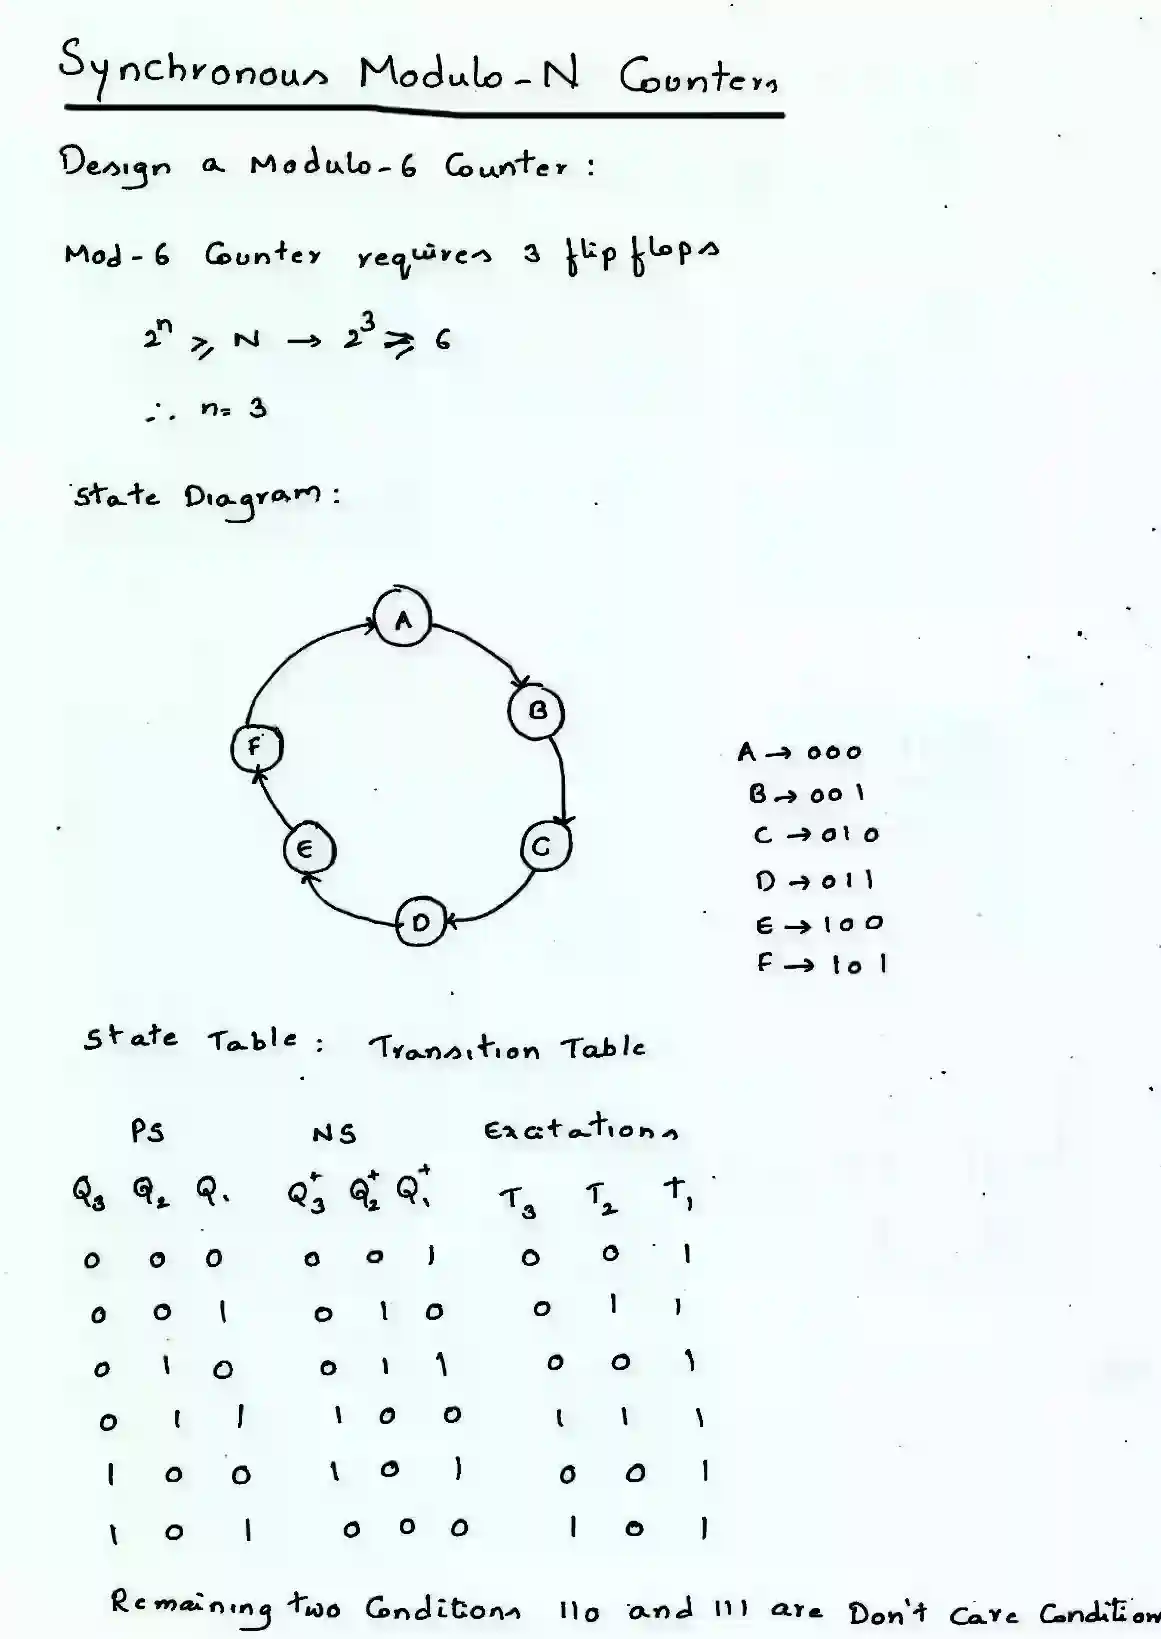 Synchronous Modulo-N Counters
Design a Modulo-6 Counter :
Mod-6 Counter requires 3 flip flops
2^n ≥ N → 2^3 ≥ 6
∴ n = 3
State Diagram :
A
B
F
E
C
D
A → 000
B → 001
C → 010
D → 011
E → 100
F → 101
State Table : Transition Table
PS NS Excitations
Q3 Q2 Q1 Q3+ Q2+ Q1+ T3 T2 T1
0 0 0 0 0 1 0 0 1
0 0 1 0 1 0 0 1 1
0 1 0 0 1 1 0 0 1
0 1 1 1 0 0 1 1 1
1 0 0 1 0 1 0 0 1
1 0 1 0 0 0 1 0 1
Remaining two Conditions 110 and 111 are Don't Care Condition